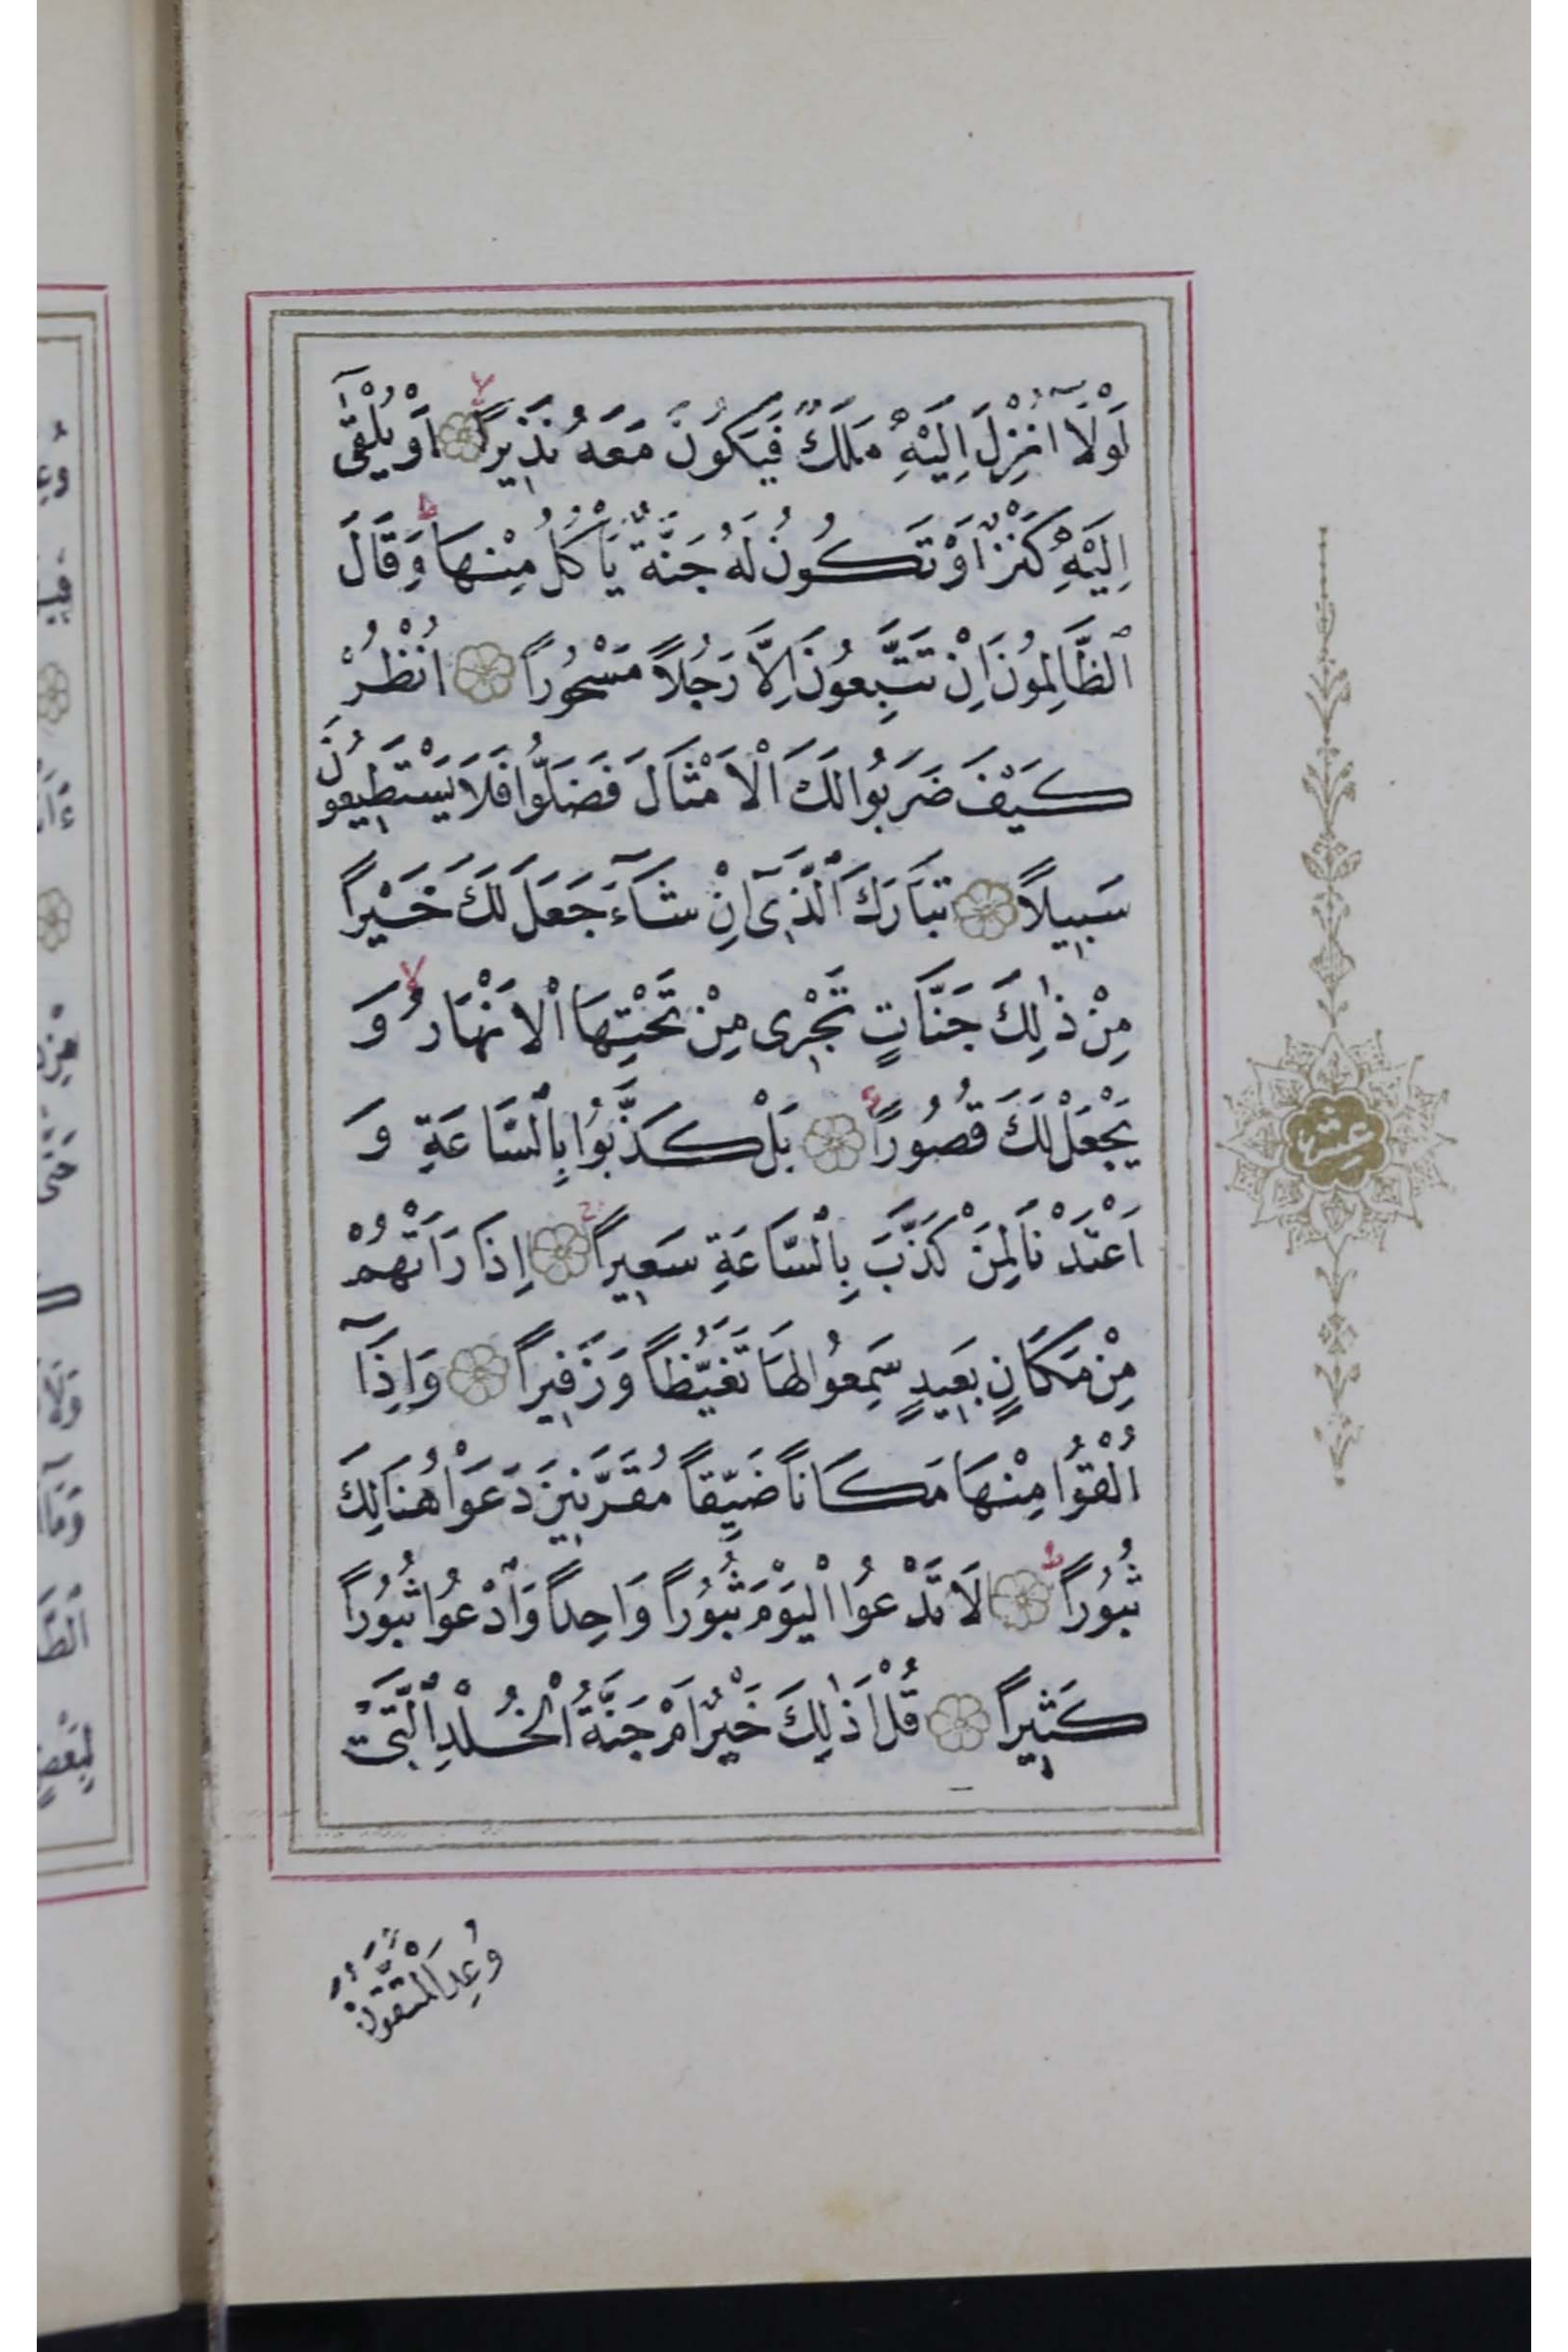 لَوْلَآ اُنْزِلَ اِلَيْهِ مَلَكٌ فَيَكُونَ مَعَهُ نَذِيرًا ۝ اَوْ يُلْقٰٓى
اِلَيْهِ كَنْزٌ اَوْ تَكُونُ لَهُ جَنَّةٌ يَأْكُلُ مِنْهَا ط وَقَالَ
ٱلظَّالِمُونَ اِنْ تَتَّبِعُونَ اِلَّا رَجُلًا مَسْحُورًا ۝ اُنْظُرْ
كَيْفَ ضَرَبُوا لَكَ ٱلْاَمْثَالَ فَضَلُّوا فَلَا يَسْتَطِيعُونَ
سَبِيلًا ۝ تَبَارَكَ ٱلَّذِىٓ اِنْ شَآءَ جَعَلَ لَكَ خَيْرًا
مِنْ ذٰلِكَ جَنَّاتٍ تَجْرِى مِنْ تَحْتِهَا ٱلْاَنْهَارُ لا وَ
يَجْعَلْ لَكَ قُصُورًا ۝ بَلْ كَذَّبُوا بِٱلسَّاعَةِ وَ
عشر
اَعْتَدْنَا لِمَنْ كَذَّبَ بِٱلسَّاعَةِ سَعِيرًا ۝ اِذَا رَاَتْهُمْ
مِنْ مَكَانٍ بَعِيدٍ سَمِعُوا لَهَا تَغَيُّظًا وَزَفِيرًا ۝ وَاِذَآ
اُلْقُوا مِنْهَا مَكَانًا ضَيِّقًا مُقَرَّنِينَ دَعَوْا هُنَالِكَ
ثُبُورًا ط ۝ لَا تَدْعُوا ٱلْيَوْمَ ثُبُورًا وَاحِدًا وَٱدْعُوا ثُبُورًا
كَثِيرًا ۝ قُلْ اَذٰلِكَ خَيْرٌ اَمْ جَنَّةُ ٱلْخُلْدِ ٱلَّتِى
وُعِدَ ٱلْمُتَّقُونَ